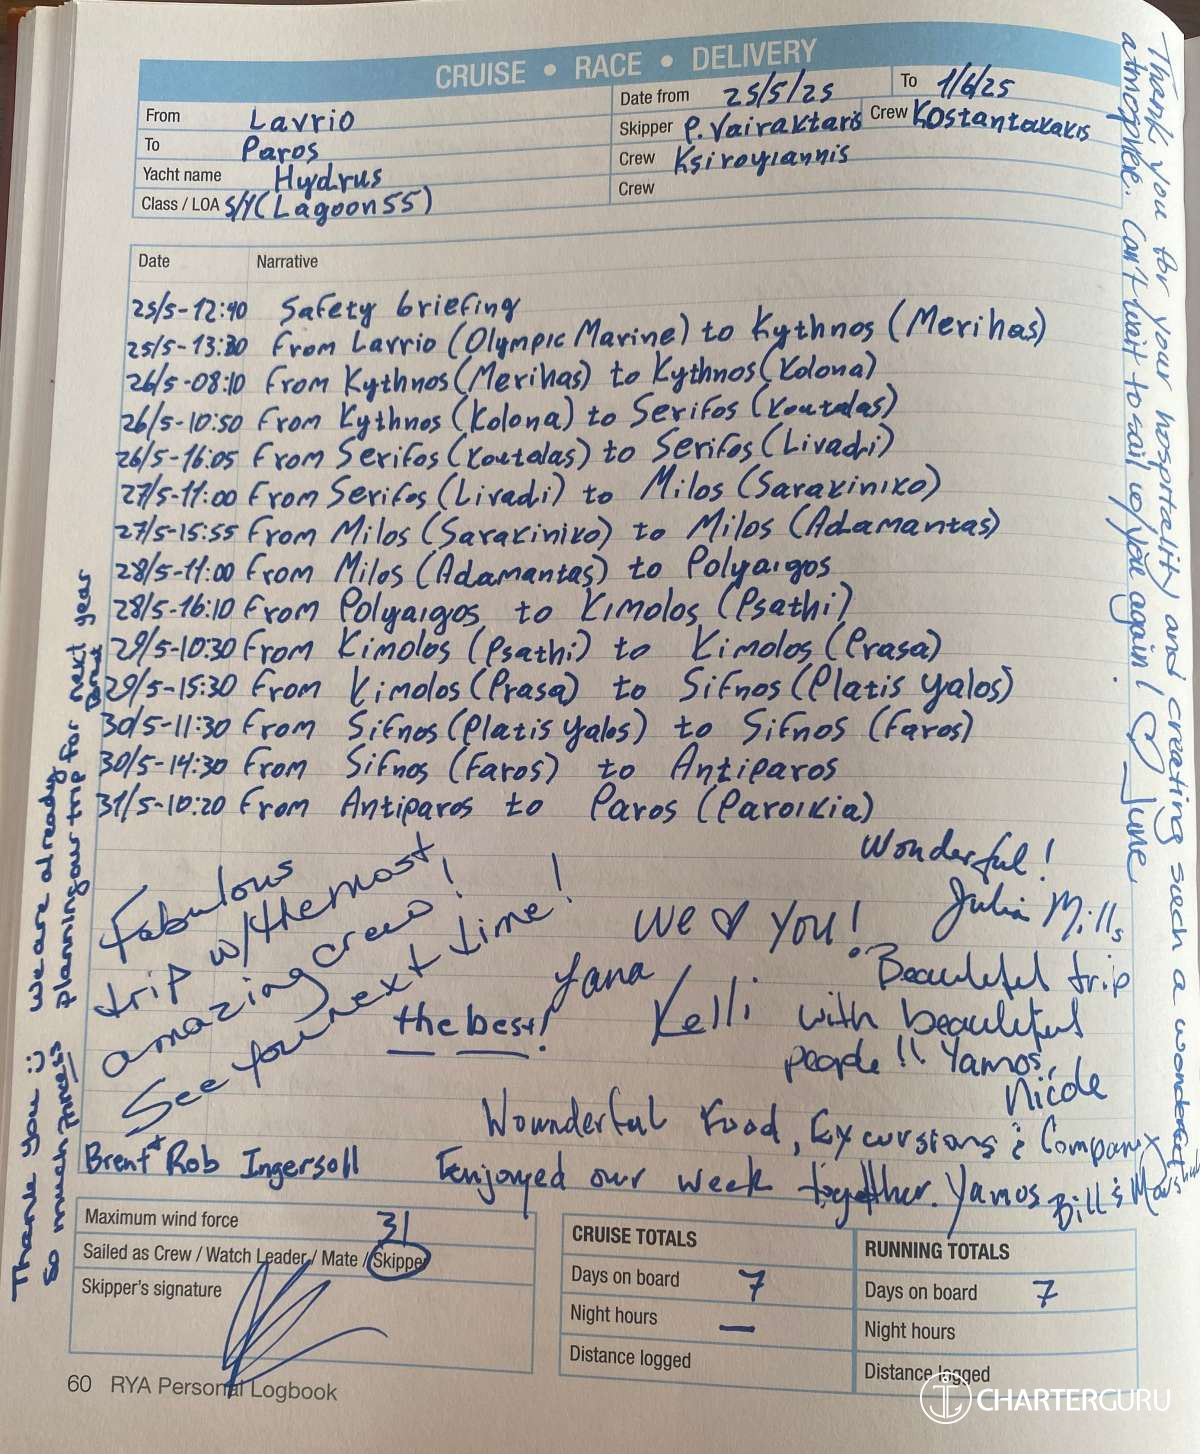 CRUISE • RACE • DELIVERY
From Lavrio
To Paros
Yacht name Hydrus
Class / LOA S/Y (Lagoon 55)
Date from 25/5/25 To 1/6/25
Skipper P. Vairaktaris Crew Kostantakakis
Crew Ksirogiannis
Crew
Date Narrative
25/5-12:40 Safety briefing
25/5-13:30 From Lavrio (Olympic Marine) to Kythnos (Merihas)
26/5-08:10 From Kythnos (Merihas) to Kythnos (Kolona)
26/5-10:50 From Kythnos (Kolona) to Serifos (Koutalas)
26/5-16:05 From Serifos (Koutalas) to Serifos (Livadi)
27/5-11:00 From Serifos (Livadi) to Milos (Sarakiniko)
27/5-15:55 From Milos (Sarakiniko) to Milos (Adamantas)
28/5-11:00 From Milos (Adamantas) to Polyaigos
28/5-16:10 From Polyaigos to Kimolos (Psathi)
29/5-10:30 From Kimolos (Psathi) to Kimolos (Prasa)
29/5-15:30 From Kimolos (Prasa) to Sifnos (Platis yalos)
30/5-11:30 From Sifnos (Platis yalos) to Sifnos (Faros)
30/5-14:30 From Sifnos (Faros) to Antiparos
31/5-10:20 From Antiparos to Paros (Paroikia)
Fabulous
trip w/the most
amazing crew!
See you next time!
Brent + Rob Ingersoll
the best!
We ♥ You!
Yana
Kelli
Wonderful!
Julia Mills
Beautiful trip
with beautiful
people!! Yamos,
Nicole
Wounderful Food, Excursions & Company
Eenjoyed our week together. Yamos Bill & Mars
Thank you :) We are already
So much planning our trip for next year
Thank you for your hospitality and creating such a wonderful
atmosphere. Can't wait to sail w/you again! ♡ June
Maximum wind force 31
Sailed as Crew / Watch Leader / Mate / Skipper
Skipper's signature
CRUISE TOTALS
Days on board 7
Night hours —
Distance logged
RUNNING TOTALS
Days on board 7
Night hours
Distance logged
60 RYA Personal Logbook
CHARTERGURU